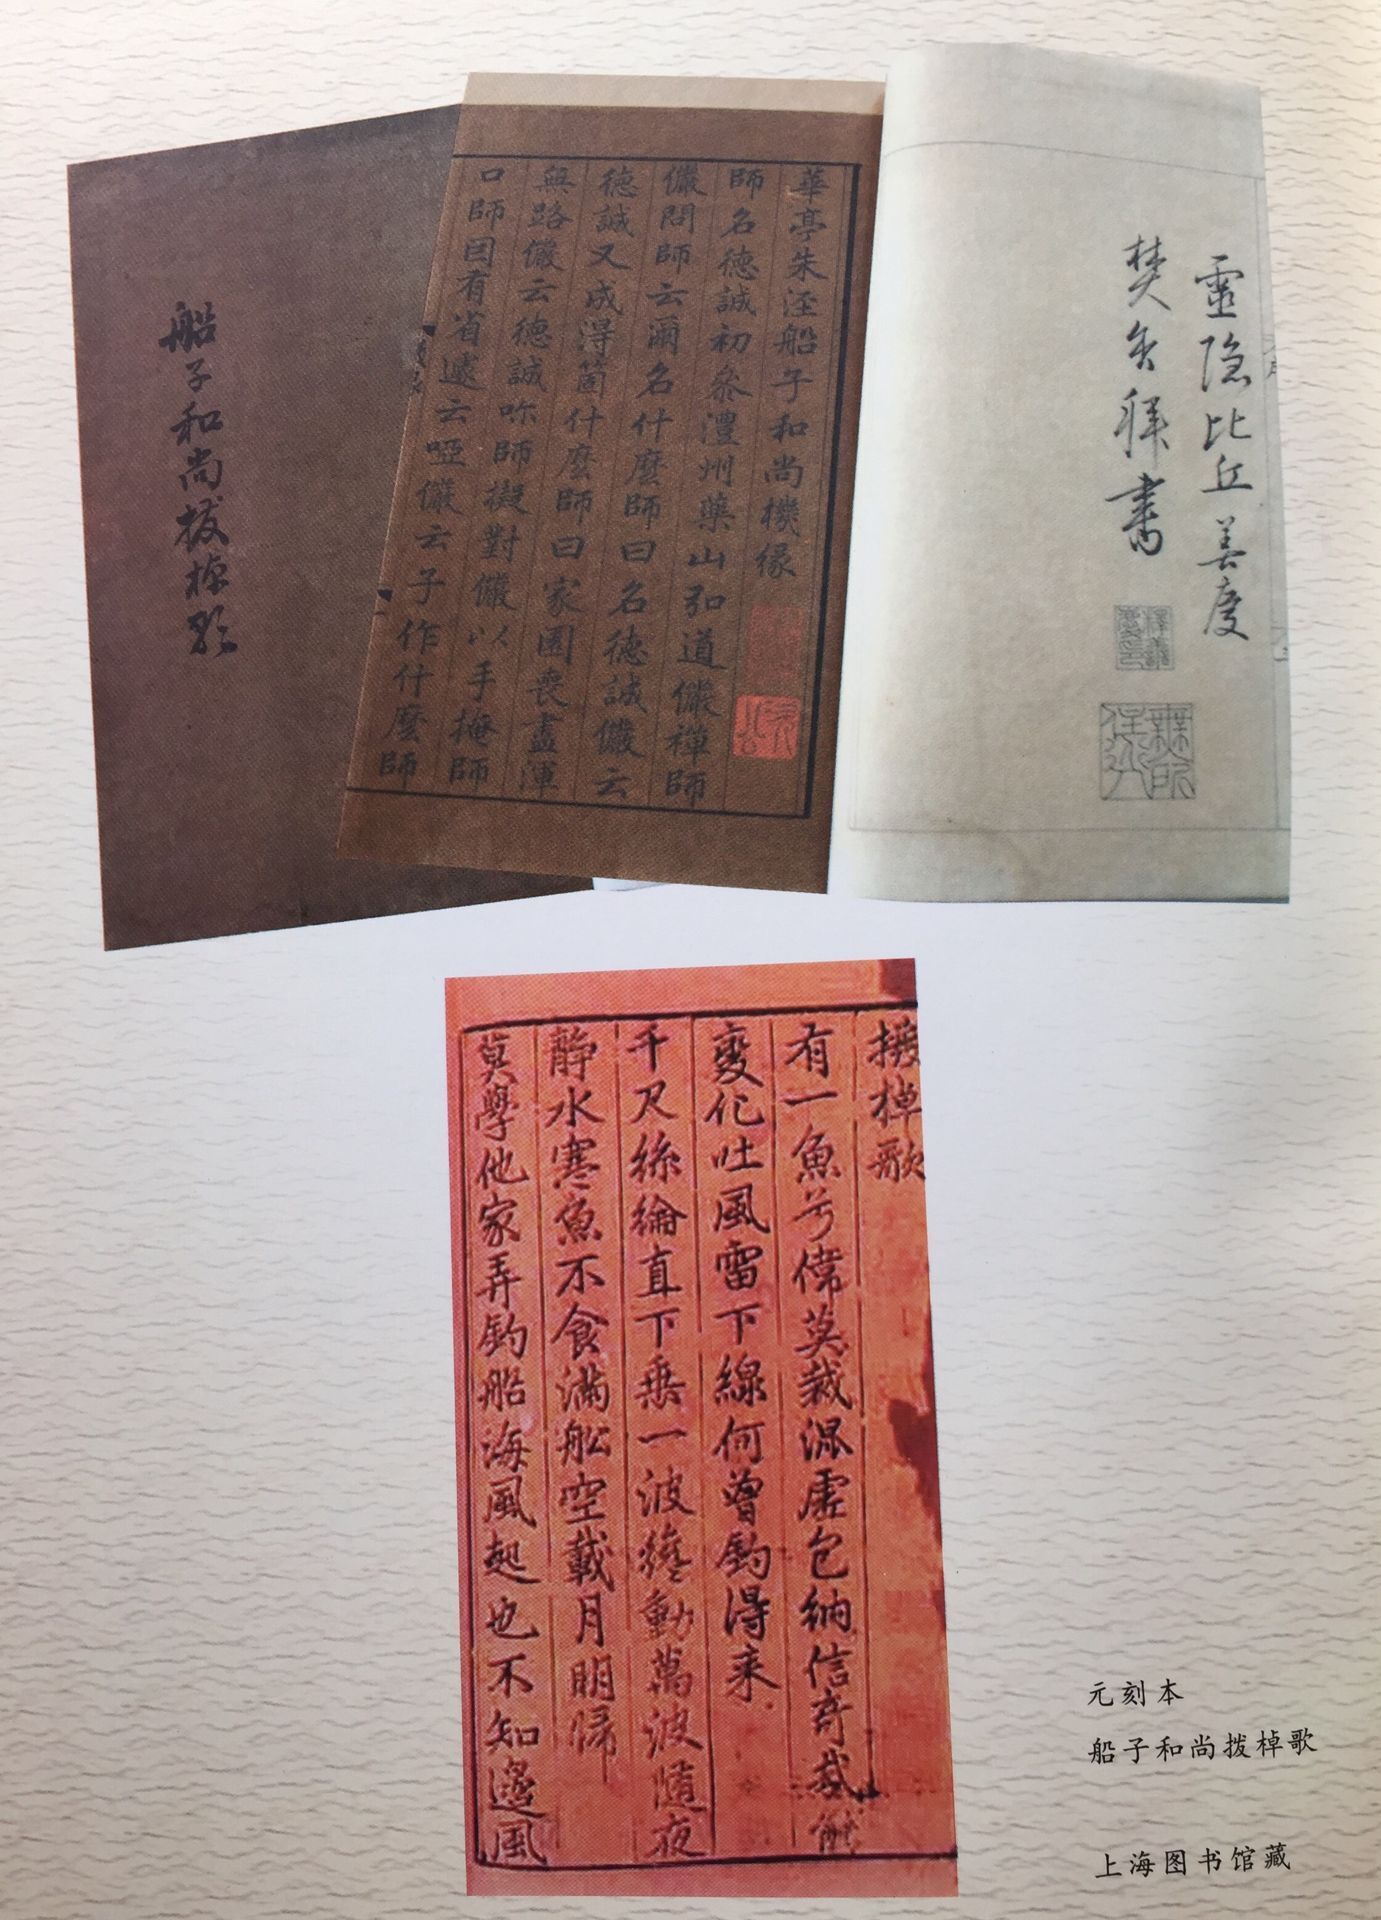 船子和尚拨棹歌
華亭朱涇船子和尚機緣
師名德誠初叅澧州藥山弘道儼禪師
儼問師云爾名什麼師曰名德誠儼云
德誠又成得箇什麼師曰家園喪盡渾
無路儼云德誠師擬對儼以手掩師
口師因有省遽云啞儼云子作什麼師
靈隐比丘美度
焚香拜書
撥棹歌
有一魚兮偉莫裁混虛包納信奇哉能
變化吐風雷下線何曾釣得来
千尺絲綸直下垂一波纔動萬波隨夜
静水寒魚不食滿舩空載月明歸
莫學他家弄釣船海風起也不知邊風
元刻本
船子和尚拨棹歌
上海图书馆藏